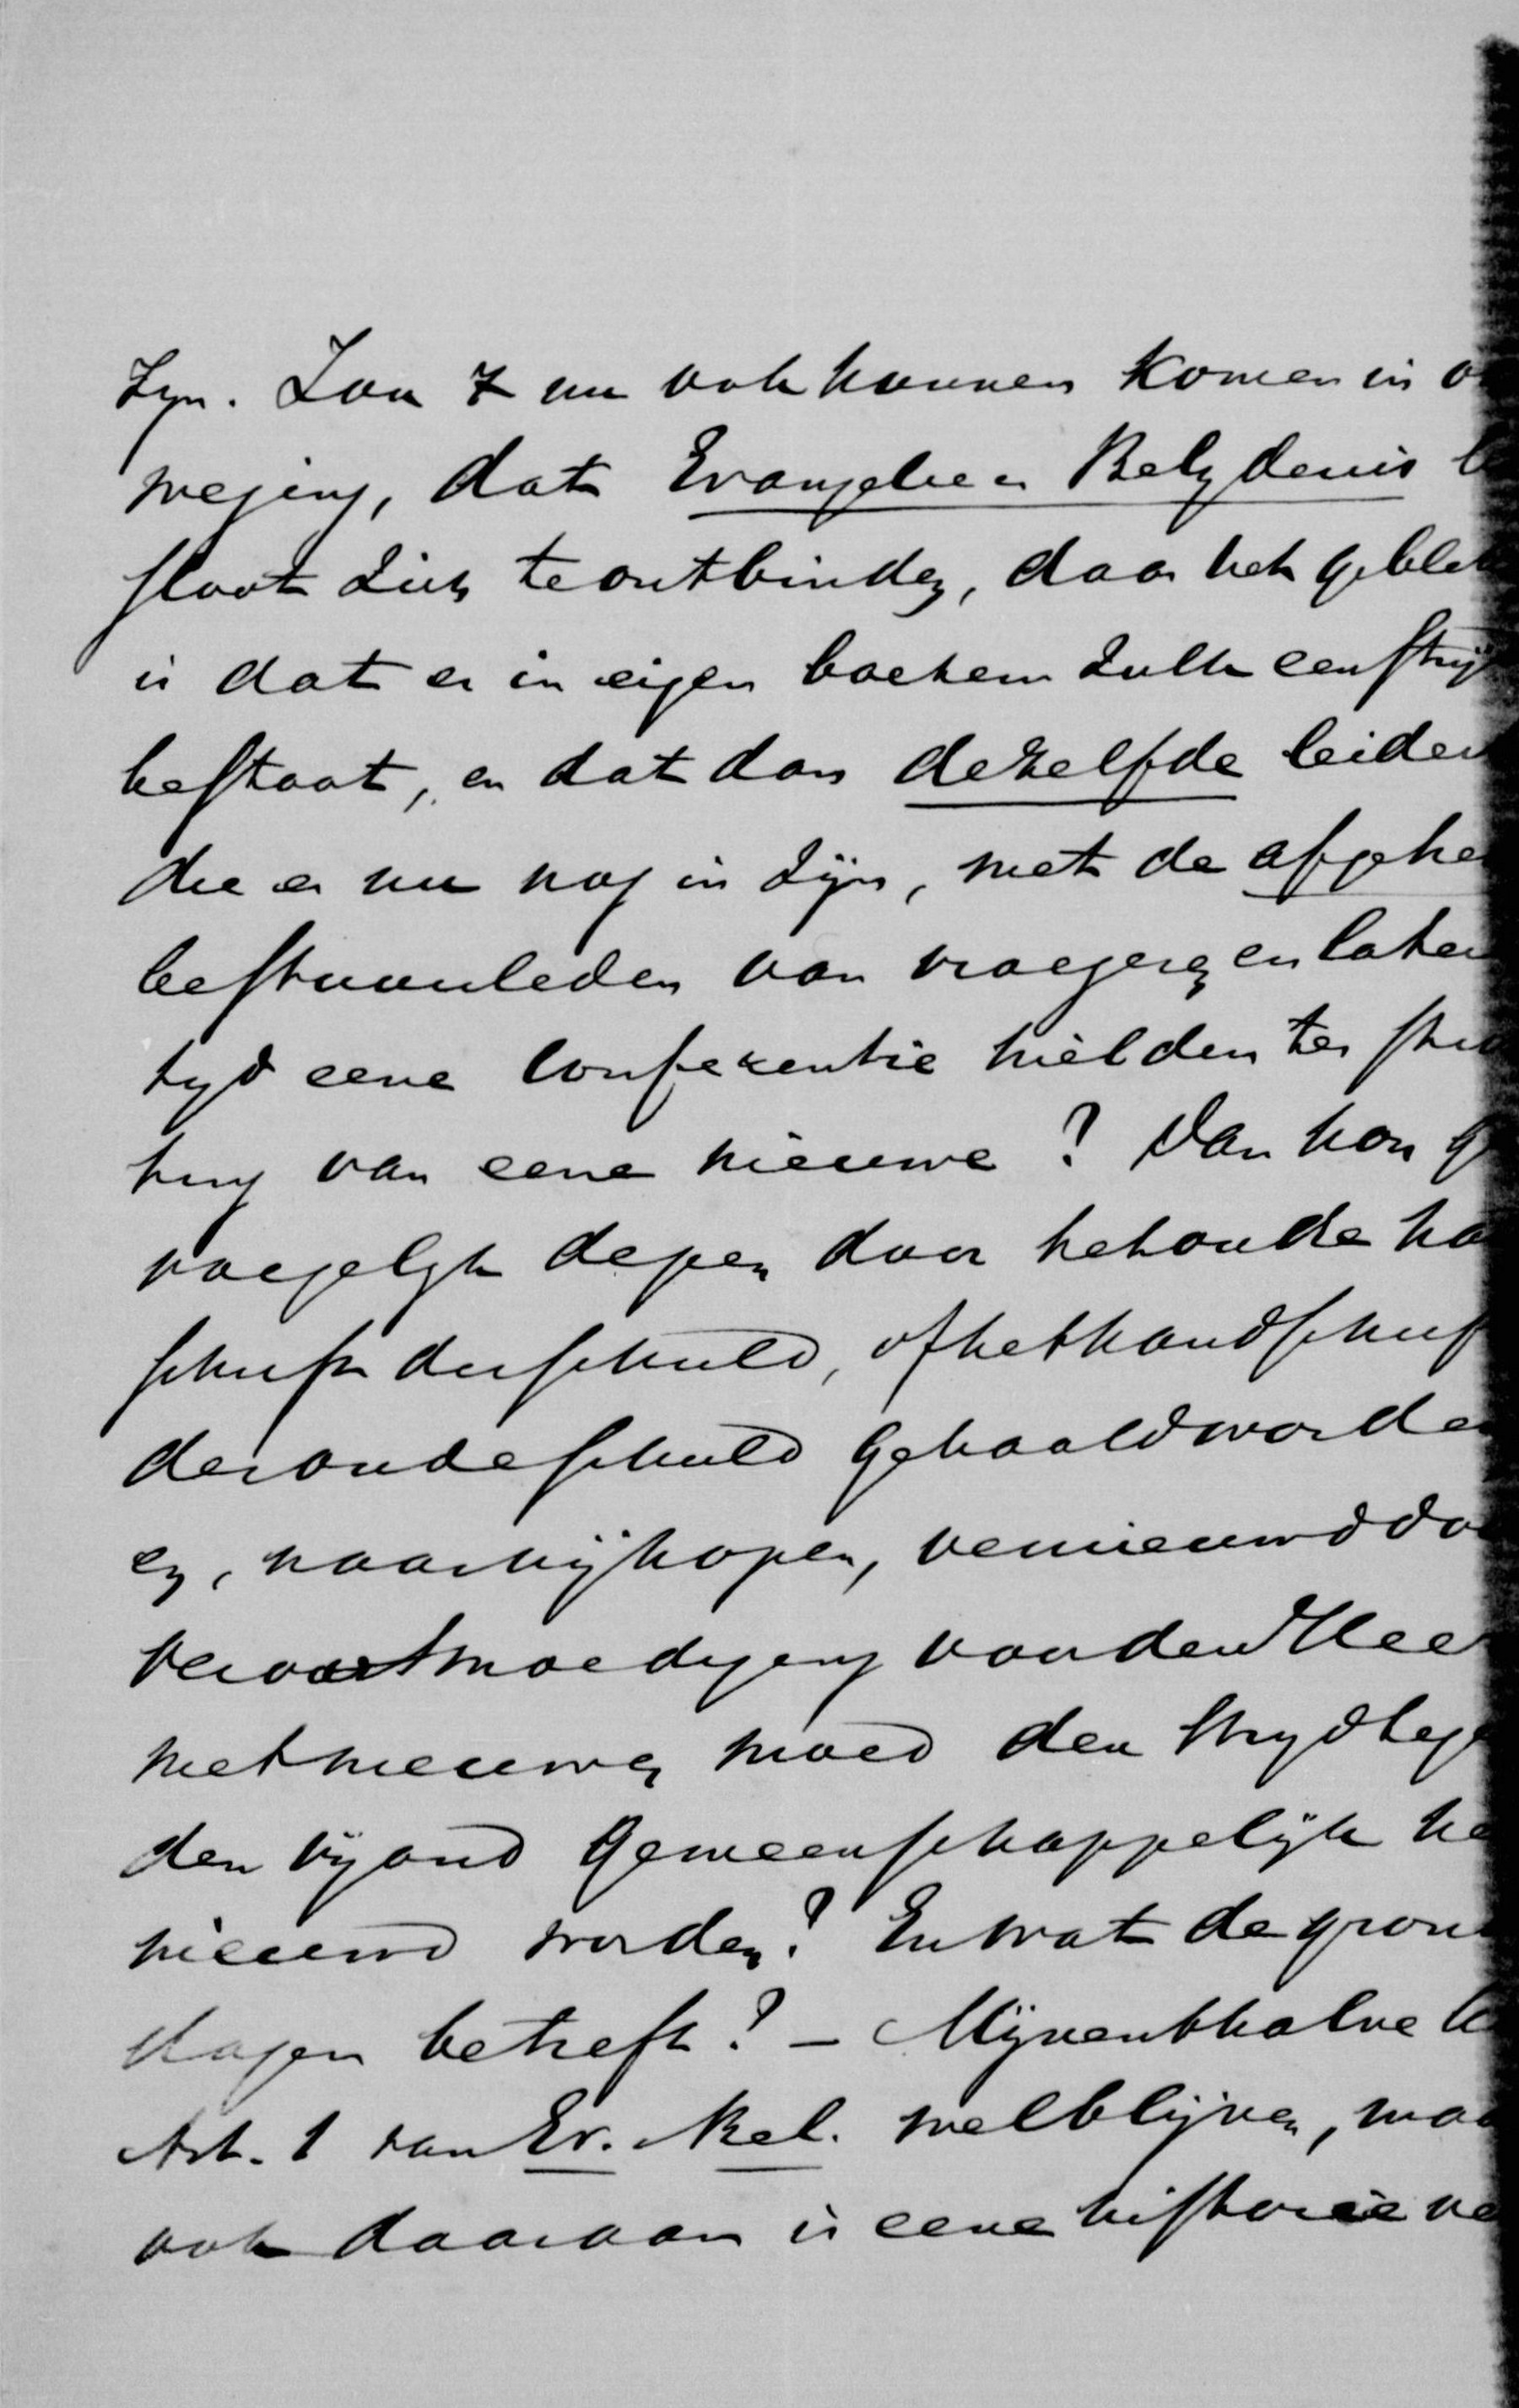 zyn. Zou 't nu ook kunnen komen in o
weging, dat Evangelie en Belydenis be
sloot zich te ontbinden, daar het geble
is dat er in eigen boezem zulk een stryd
bestaat, en dat dan dezelfde leiden
die er nu nog in zijn, met de afgetre
bestuursleden van vroegeren en lateren
tyd eene Conferentie hielden ter stich
ting van eene nieuwe? Dan kon ge
voegelyk degen door het oude ha
schrift der schuld, of het handschrif
der oude schuld gehaald worden
en, naar wij hopen, vernieuwd doo
verootmoediging voor den Heer
met nieuwen moed den stryd tege
den vijand gemeenschappelijk he
nieuwd worden? En wat de gron
slagen betreft? – Mijnenthalve
Art. 1 van Ev. & Bel. wel blijven, maa
ook daaraan is eene historie ve